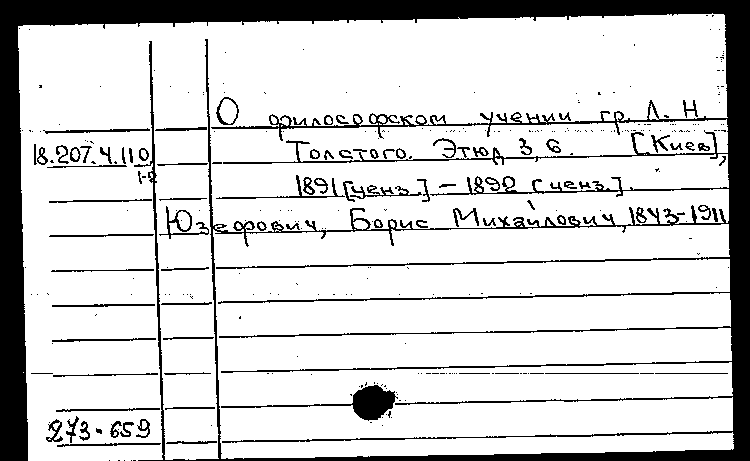 О философском учении гр. Л. Н.
18.207.4.110 Толстого. Этюд 3, 6. [Киев],
1-2
1891 [ценз.] – 1892 [ценз.].
Юзефович, Борис Михайлович, 1843-1911
273-659